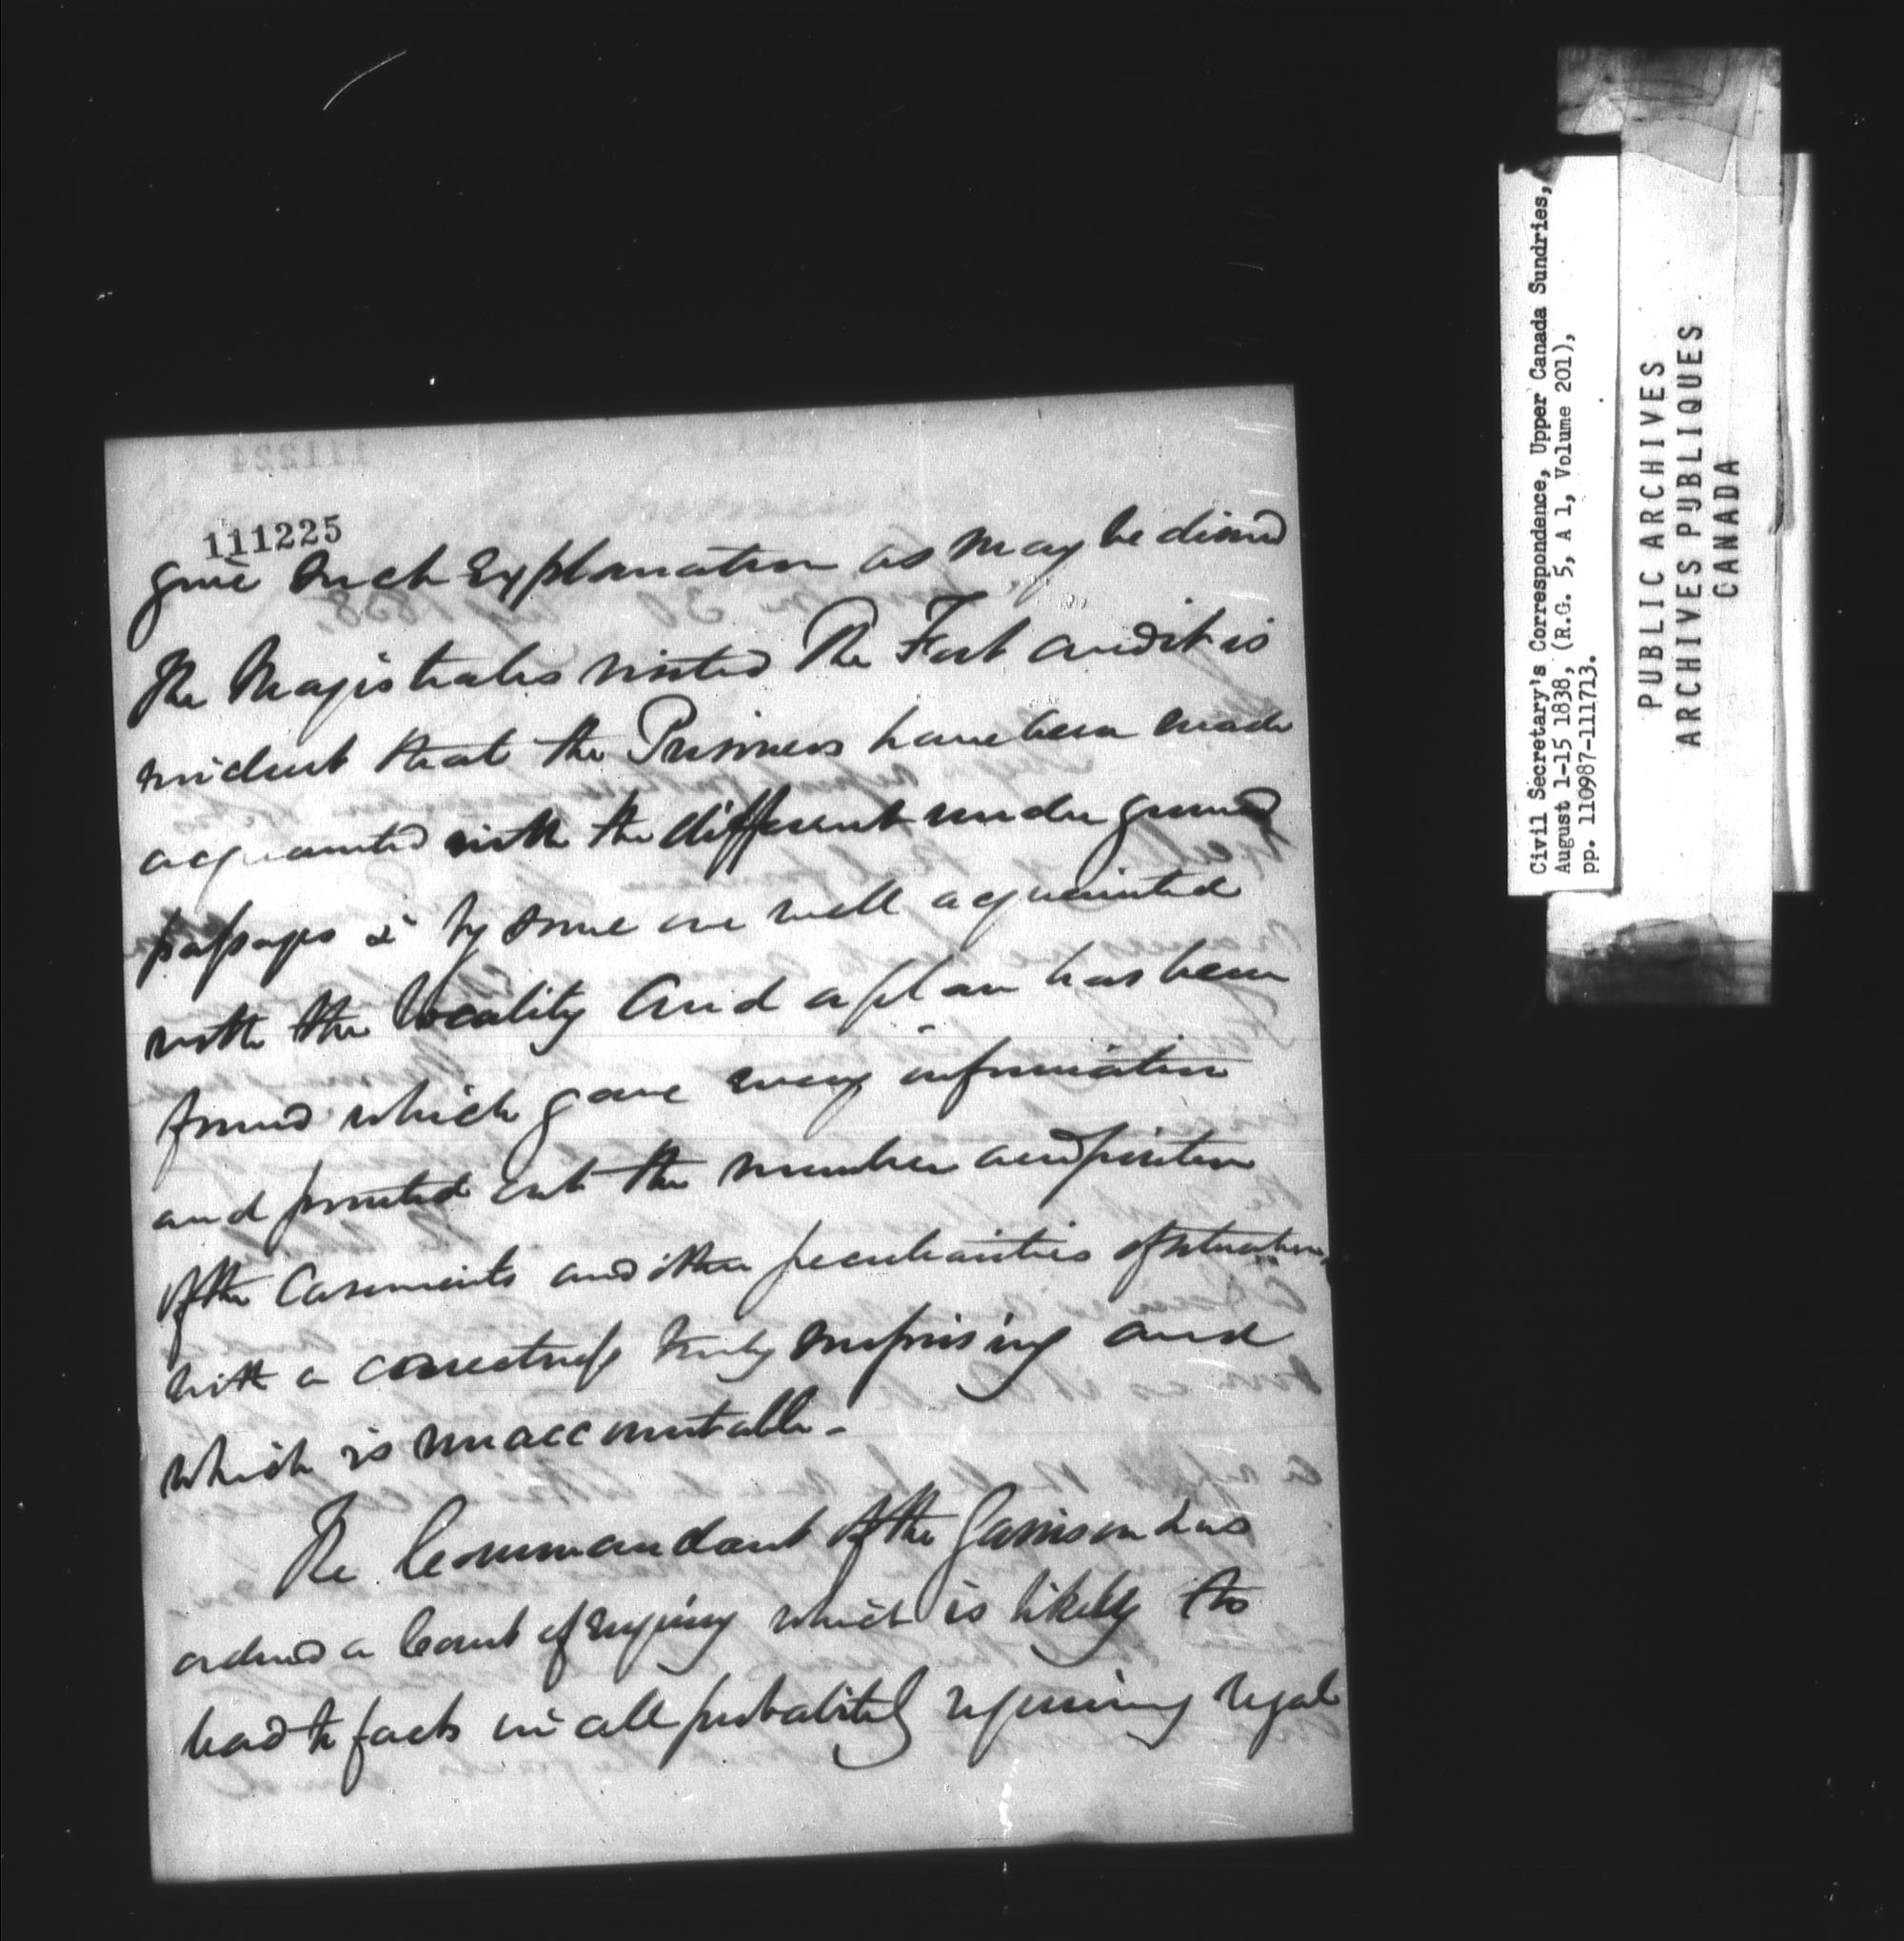 111225
give such Explanation as may be desired
The Magistrates visited The Fort and it is
evident that the Prisoners have been made
acquainted with the different under ground
passages & by some one well acquainted
with the locality and a plan has been
found which gave every information
and pointed out the number and position
of the Casements and other peculiarities of situation,
with a correctness truly surprising and
which is unaccountable.
The Commandant of the Garrison has
ordered a Court of Enquiry which is likely to
lead to facts in all probability requiring legal
Civil Secretary's Correspondence, Upper Canada Sundries,
August 1-15 1838, (R.G. 5, A 1, Volume 201),
pp. 110987-111713.
PUBLIC ARCHIVES
ARCHIVES PUBLIQUES
CANADA